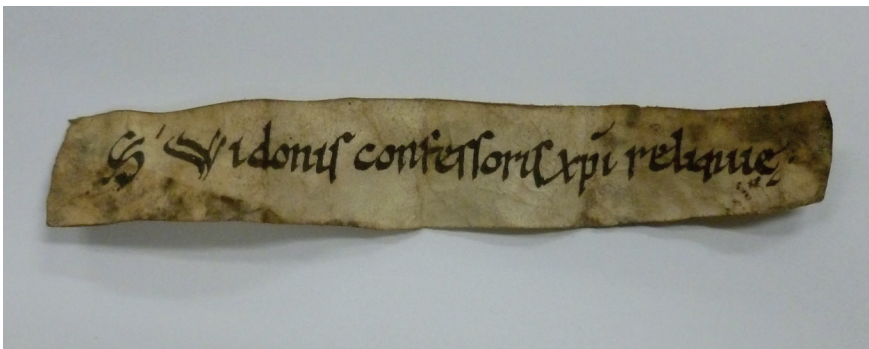 S' Widonis confessoris xp̄i reliquie